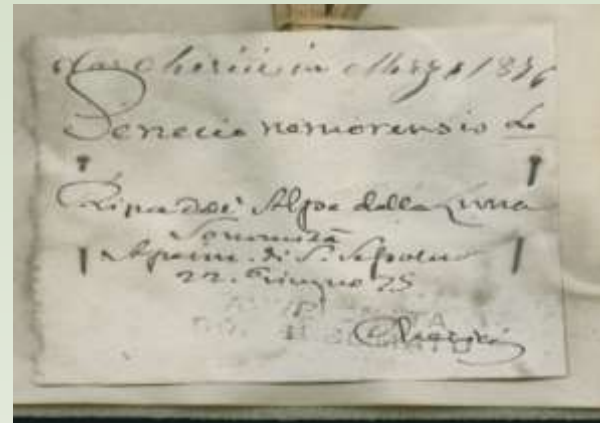 Marcherini in Marzo 1876
Senecio nemorensis L.
Ripa dell' Alpe della Luna
Sommità
Apenn. di S. Sepolcro
22. Giugno 75